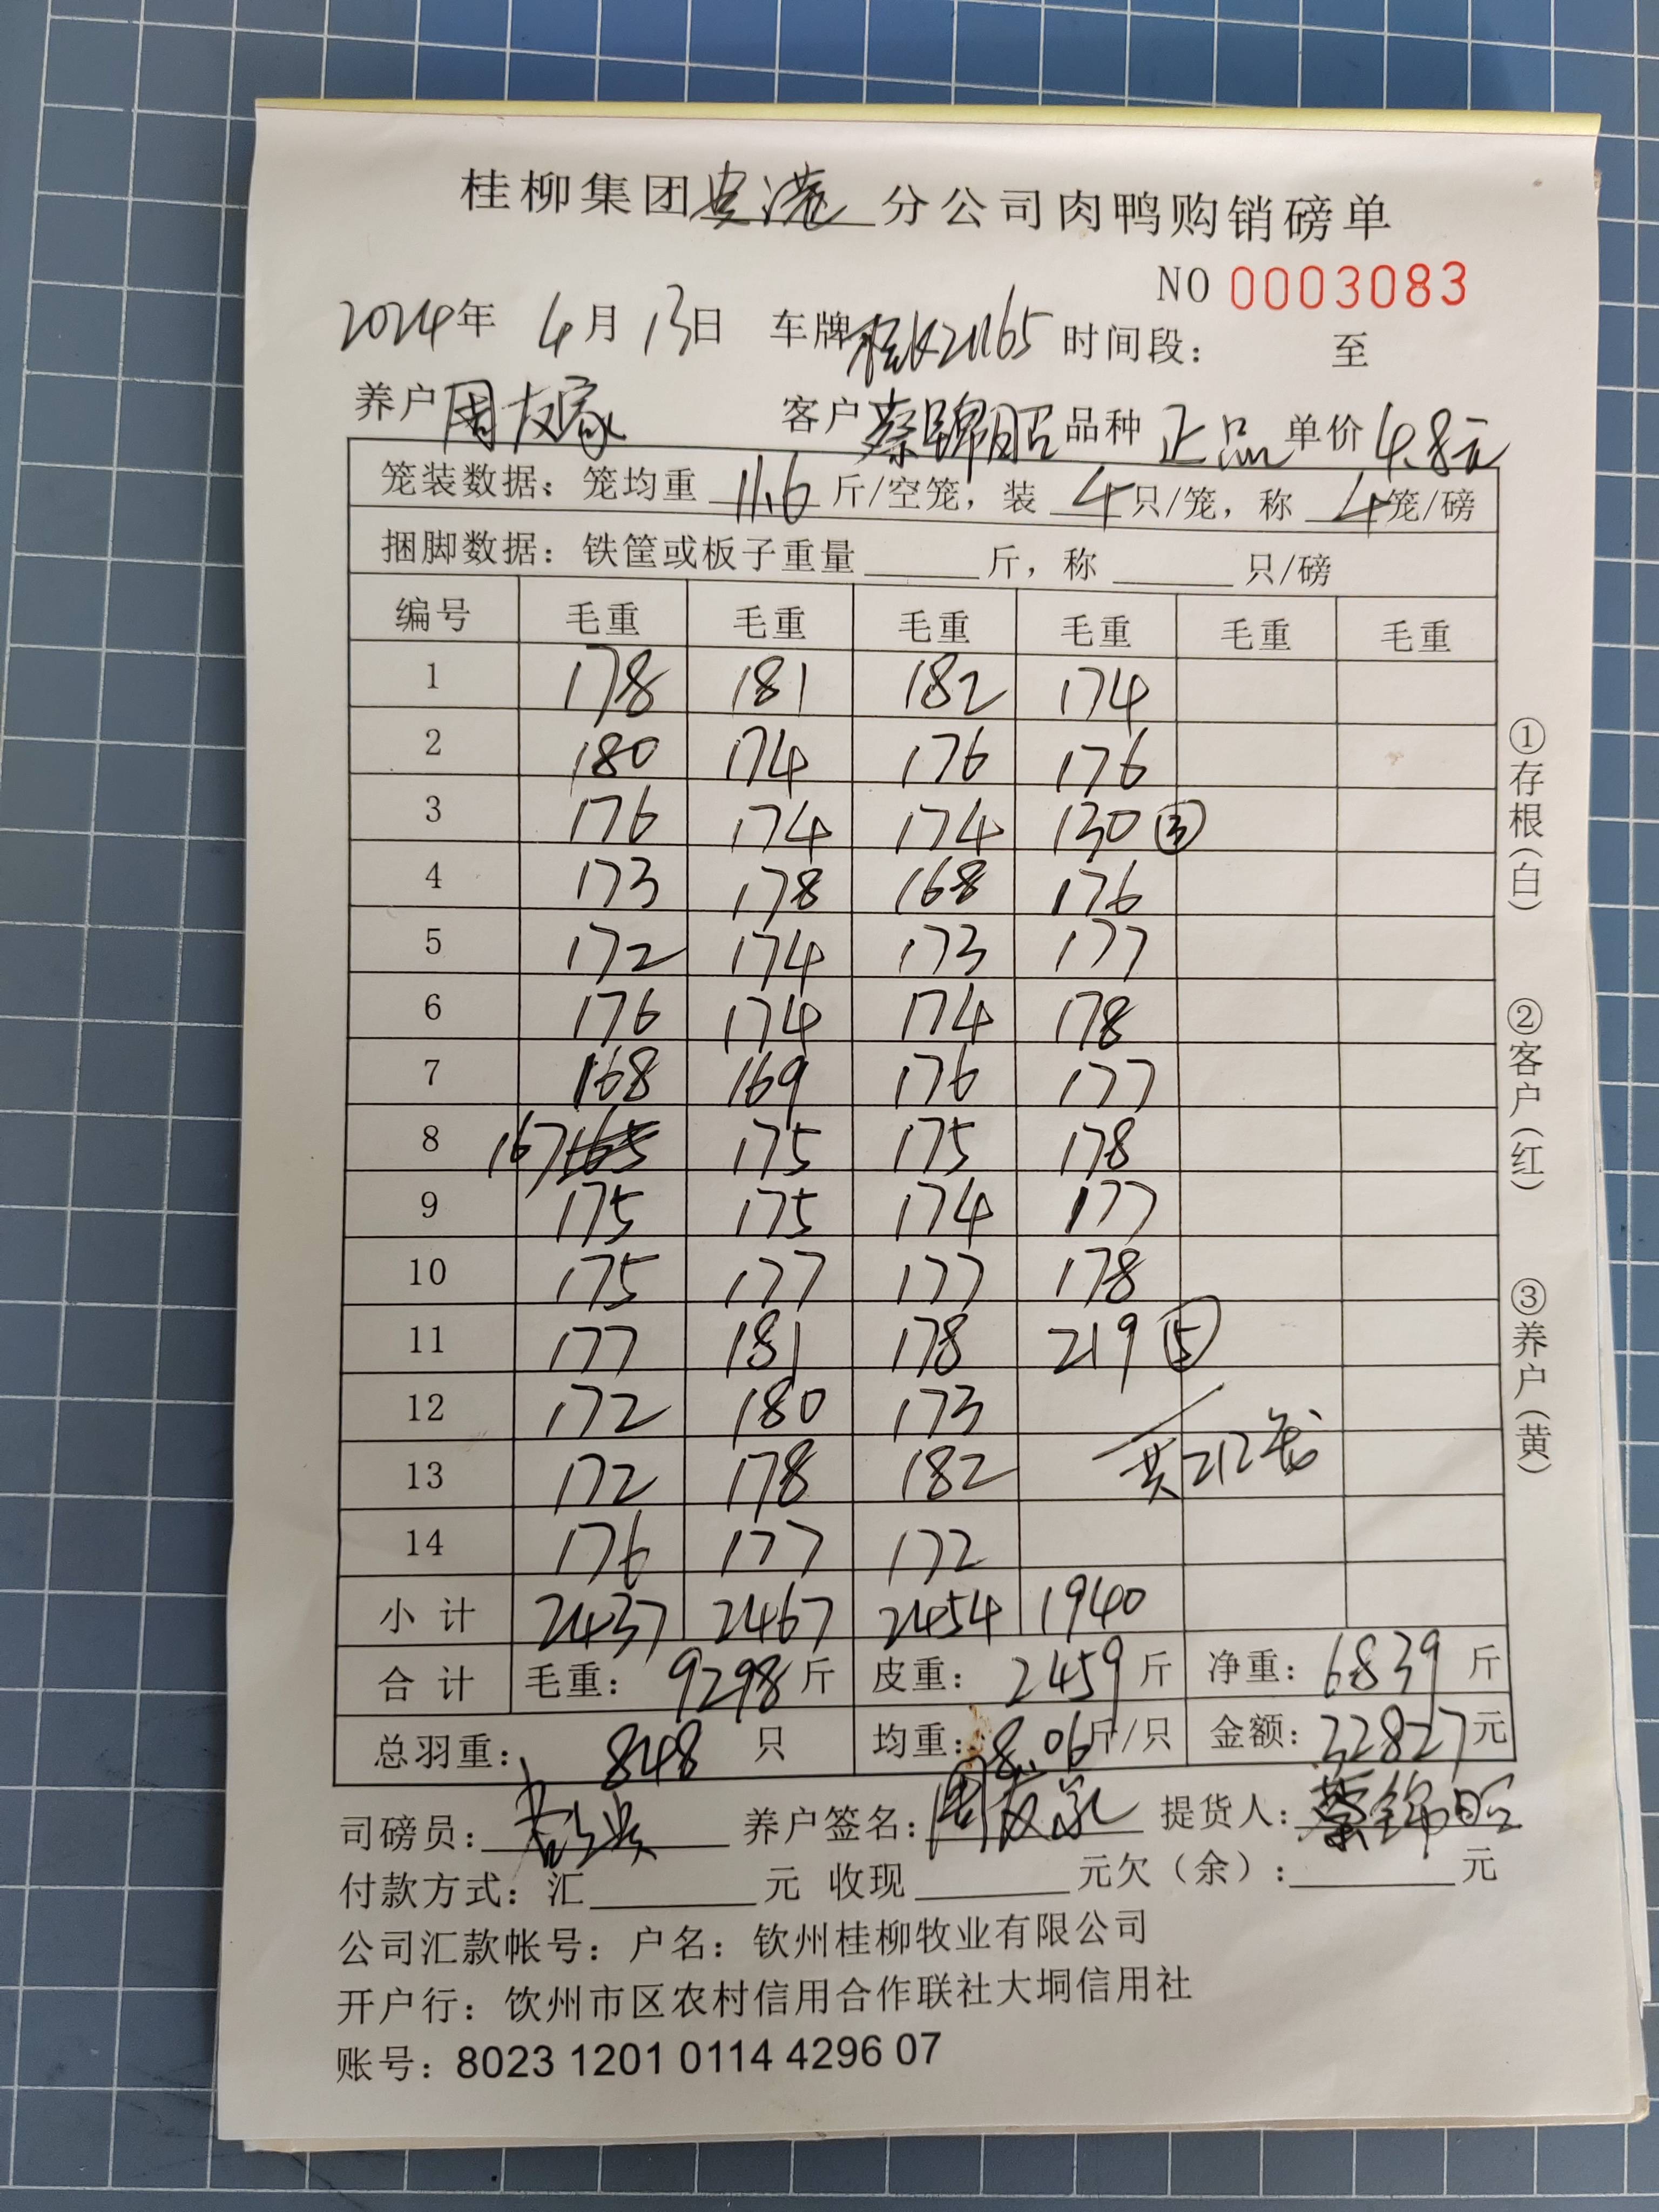 桂柳集团贵港分公司肉鸭购销磅单
NO 0003083
2024年 4月 13日 车牌桂K21165 时间段: 至
养户 周友家 客户 蔡锦昭 品种 正品 单价 4.8元
笼装数据: 笼均重 11.6 斤/空笼, 装 4 只/笼, 称 4 笼/磅
捆脚数据: 铁筐或板子重量 斤, 称 只/磅
编号 毛重 毛重 毛重 毛重 毛重 毛重
1 178 181 182 174
2 180 174 176 176
3 176 174 174 130 ③
4 173 178 168 176
5 172 174 173 177
6 176 174 174 178
7 168 169 176 177
8 167 165 175 175 178
9 175 175 174 177
10 175 177 177 178
11 177 181 178 219 ⑤
12 172 180 173
13 172 178 182 共212
14 176 177 172
小计 2437 2467 2454 1940
合计 毛重: 9298 斤 皮重: 2459 斤 净重: 6839 斤
总羽重: 848 只 均重: 8.06 斤/只 金额: 32827 元
司磅员: 养户签名: 周友家 提货人: 蔡锦昭
付款方式: 汇 元 收现 元欠(余): 元
公司汇款帐号: 户名: 钦州桂柳牧业有限公司
开户行: 钦州市区农村信用合作联社大垌信用社
账号: 8023 1201 0114 4296 07
①存根(白)
②客户(红)
③养户(黄)